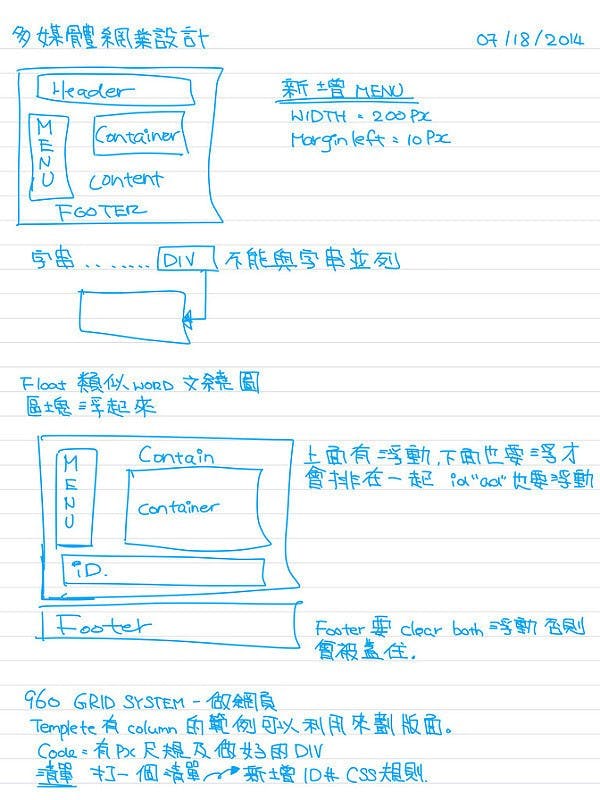 多媒體網業設計
07/18/2014
Header
MENU
Container
Content
FOOTER
新增 MENU
WIDTH = 200 Px
Margin left = 10 Px
字串........ DIV 不能與字串並列
Float 類似 WORD 文繞圖
區塊浮起來
MENU
Contain
Container
iD.
Footer
上面有浮動,下面也要浮才
會排在一起 id"ad"也要浮動
Footer 要 clear both 浮動 否則
會被蓋住.
960 GRID SYSTEM - 做網頁
Templete 有 column 的範例可以利用來劃版面。
Code = 有 Px 尺規及做好的 DIV
清單 打一個清單 新增 ID# CSS規則.